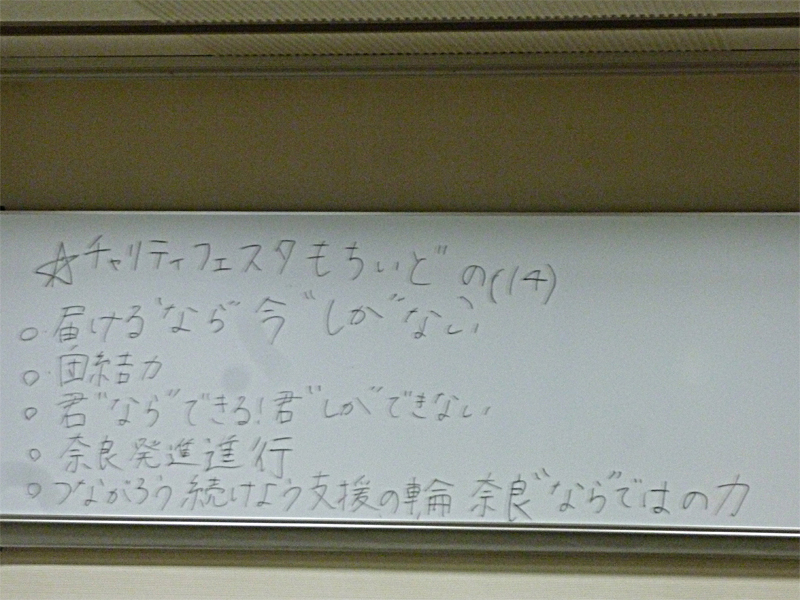 ☆チャリティフェスタもちいど の(14)
○届ける"なら"今"しか"ない
○団結力
○君"なら"できる!君"しか"できない
○奈良発進進行
○つながろう続けよう支援の輪 奈良"ならではの力